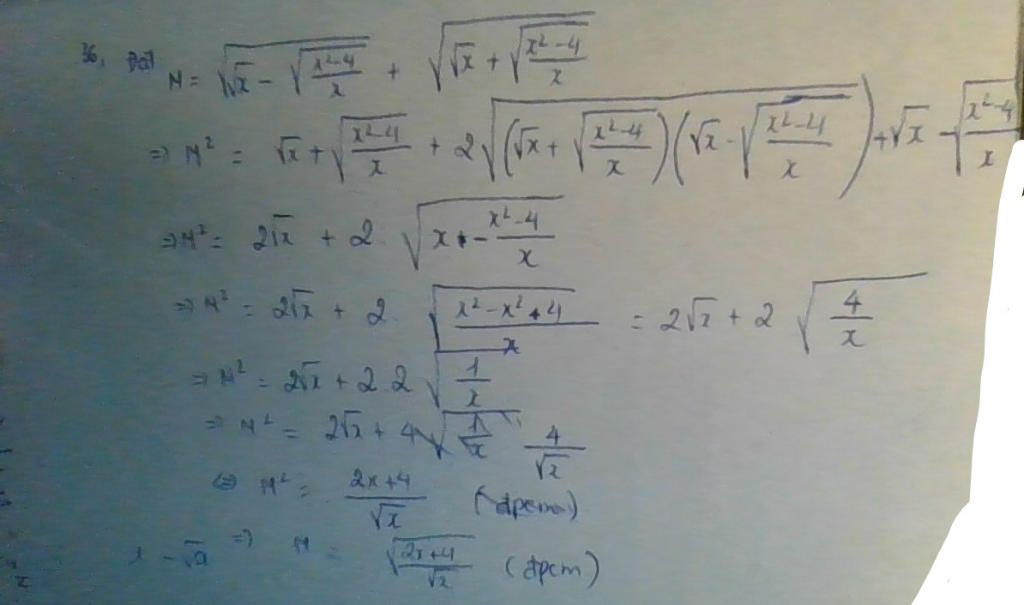 36, Đặt M = √(√x - √((x²-4)/x)) + √(√x + √((x²-4)/x))
=> M² = √x + √((x²-4)/x) + 2√((√x + √((x²-4)/x))(√x - √((x²-4)/x))) + √x - √((x²-4)/x)
=> M² = 2√x + 2 √(x - (x²-4)/x)
=> M² = 2√x + 2 √((x²-x²+4)/x) = 2√x + 2 √(4/x)
=> M² = 2√x + 2.2 √(1/x)
=> M² = 2√x + 4 4/√x
<=> M² = (2x+4)/√x
=> M = √((2x+4)/√x) (đpcm)